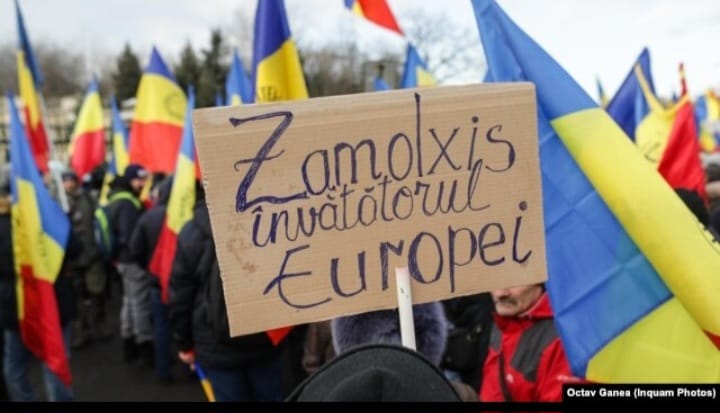 Zamolxis
învățătorul
Europei
Octav Ganea (Inquam Photos)